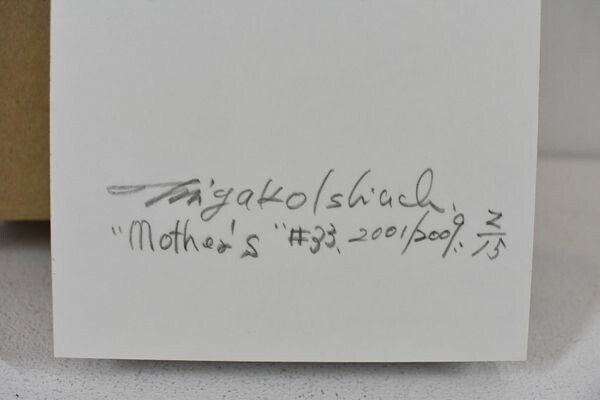 Miyako Ishiuchi
"Mother's" #33. 2001/2009. 2/15